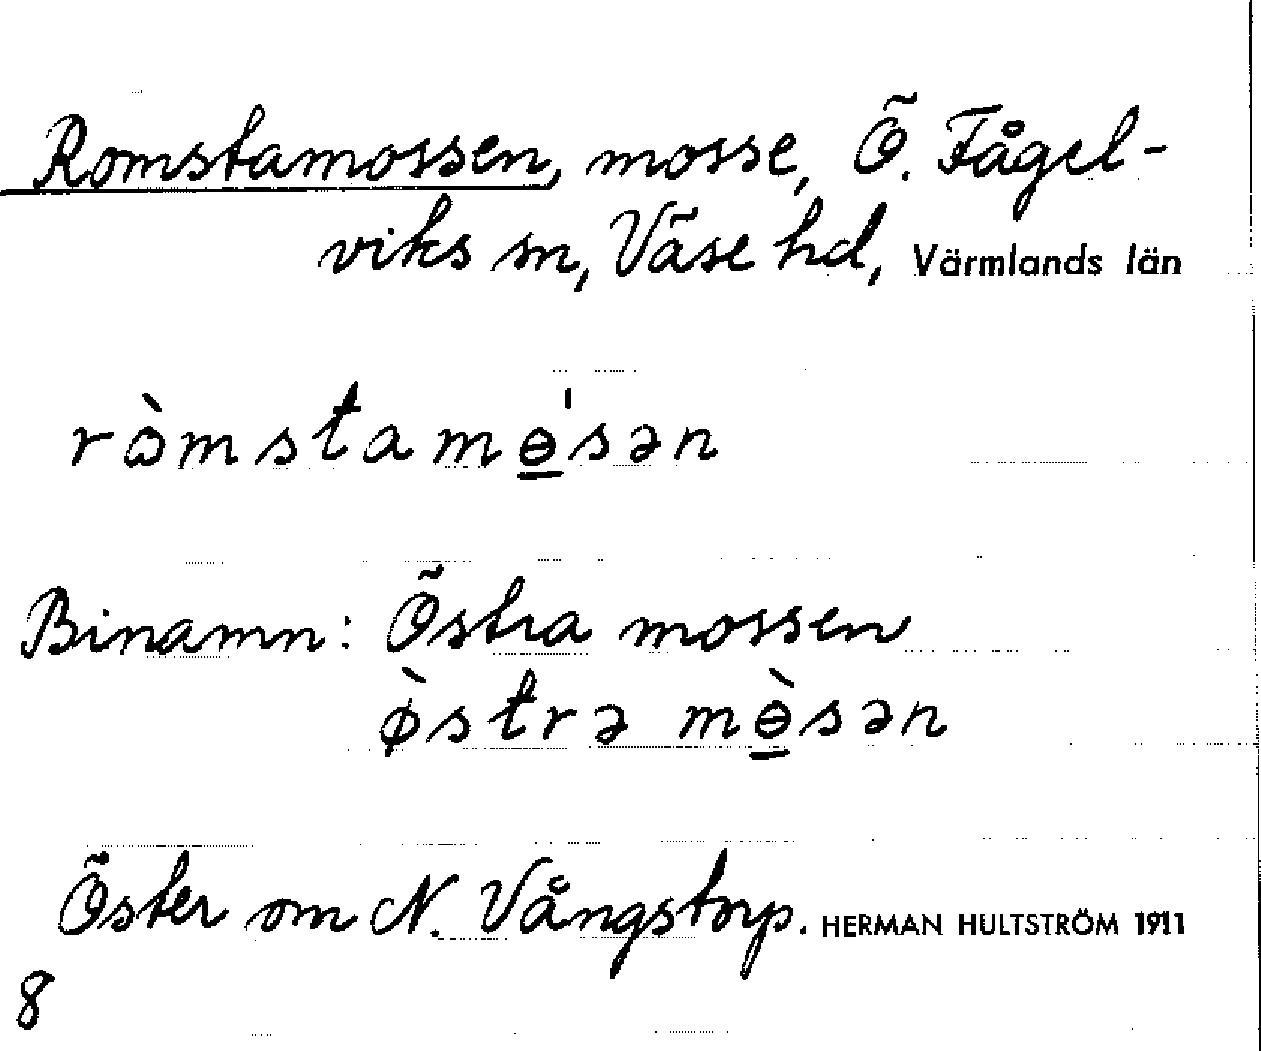 Romstamossen, mosse, Ö. Fågel-
viks sn, Väse hd, Värmlands län
ròmstamɵ̱'sən
Binamn: Östra mossen
ø̀strə mɵ̱̀sən
Öster om N. Vångstorp. HERMAN HULTSTRÖM 1911
8